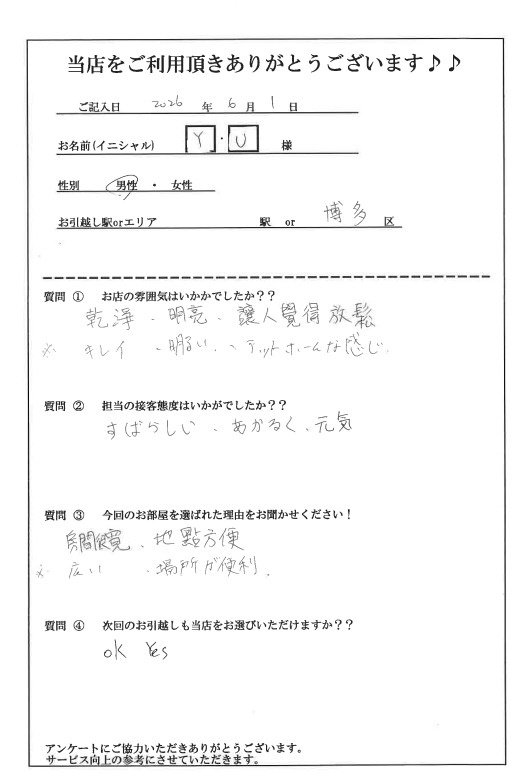 当店をご利用頂きありがとうございます♪♪
ご記入日 2026 年 6 月 1 日
お名前(イニシャル) Y・U 様
性別 男性 ・ 女性
お引越し駅orエリア 駅 or 博多 区
質問 ① お店の雰囲気はいかかでしたか??
乾淨、明亮、讓人覺得放鬆
※ キレイ、明るい、アットホームな感じ.
質問 ② 担当の接客態度はいかがでしたか??
すばらしい、あかるく、元気
質問 ③ 今回のお部屋を選ばれた理由をお聞かせください!
房間很寬、地點方便
※ 広い、場所が便利.
質問 ④ 次回のお引越しも当店をお選びいただけますか??
ok Yes
アンケートにご協力いただきありがとうございます。
サービス向上の参考にさせていただきます。